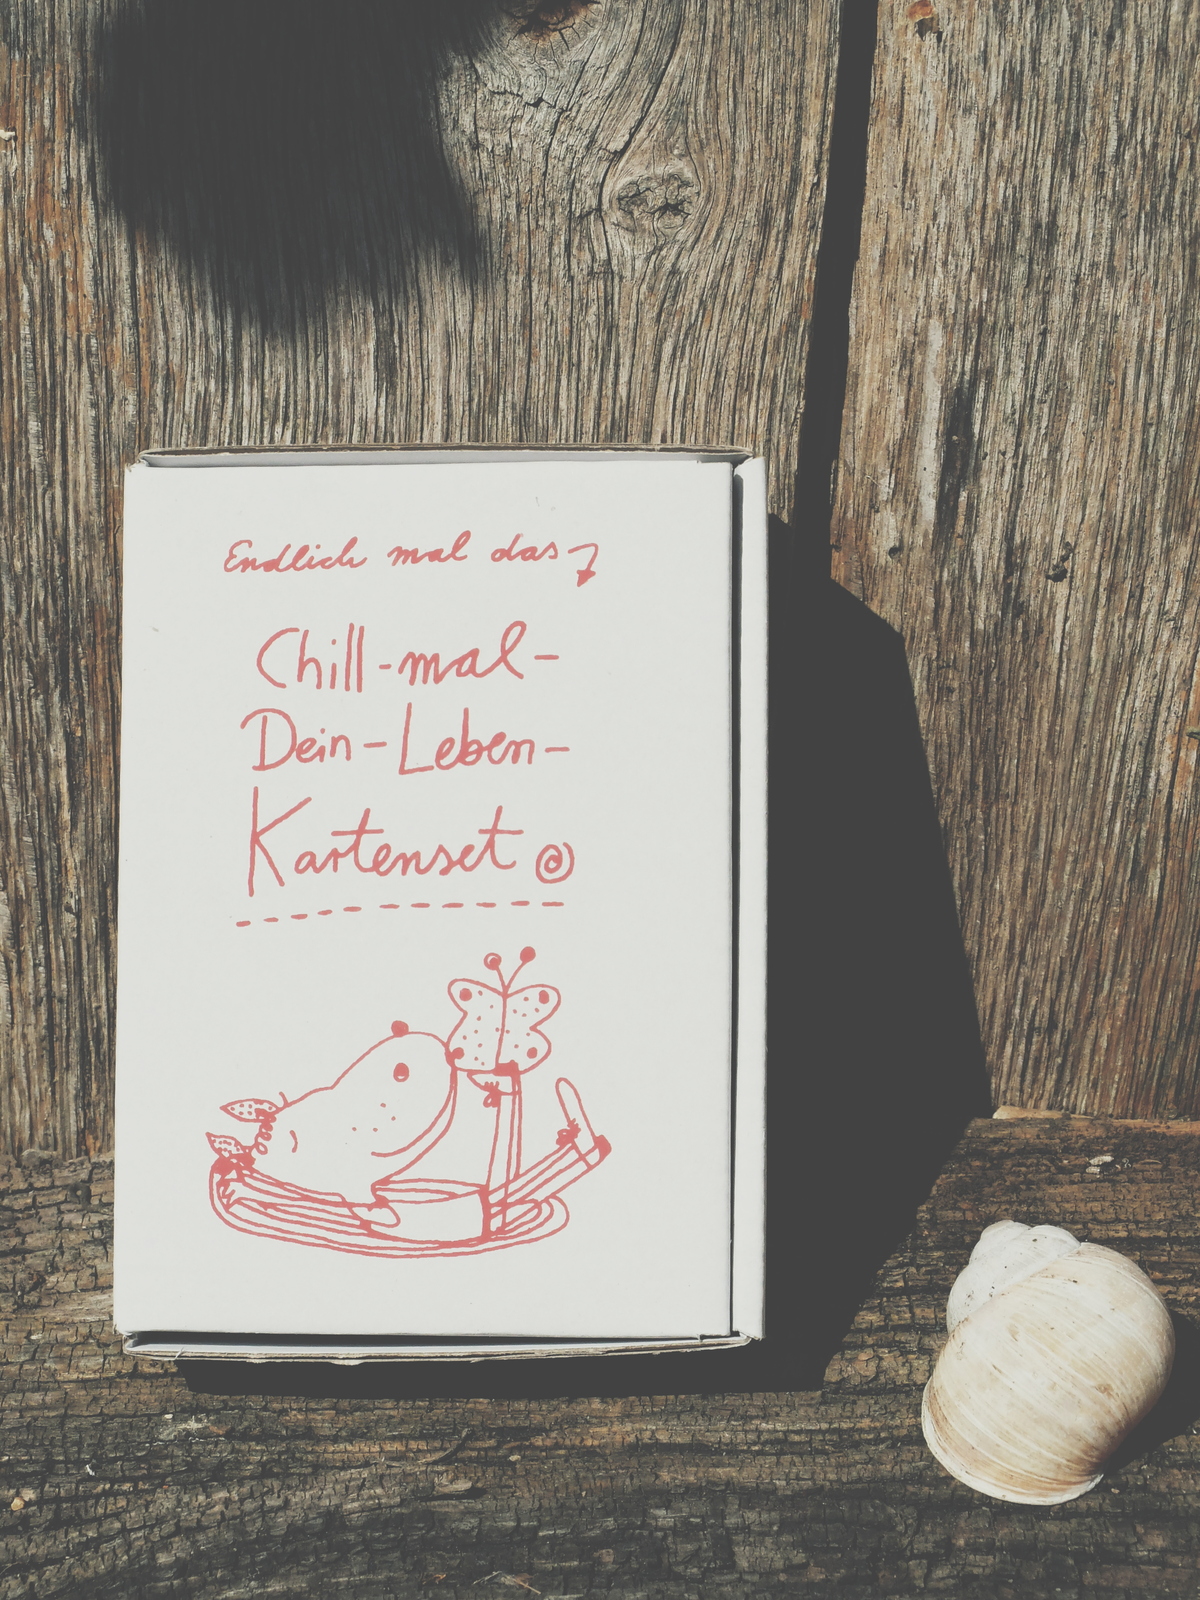 Endlich mal das
Chill-mal-
Dein-Leben-
Kartenset